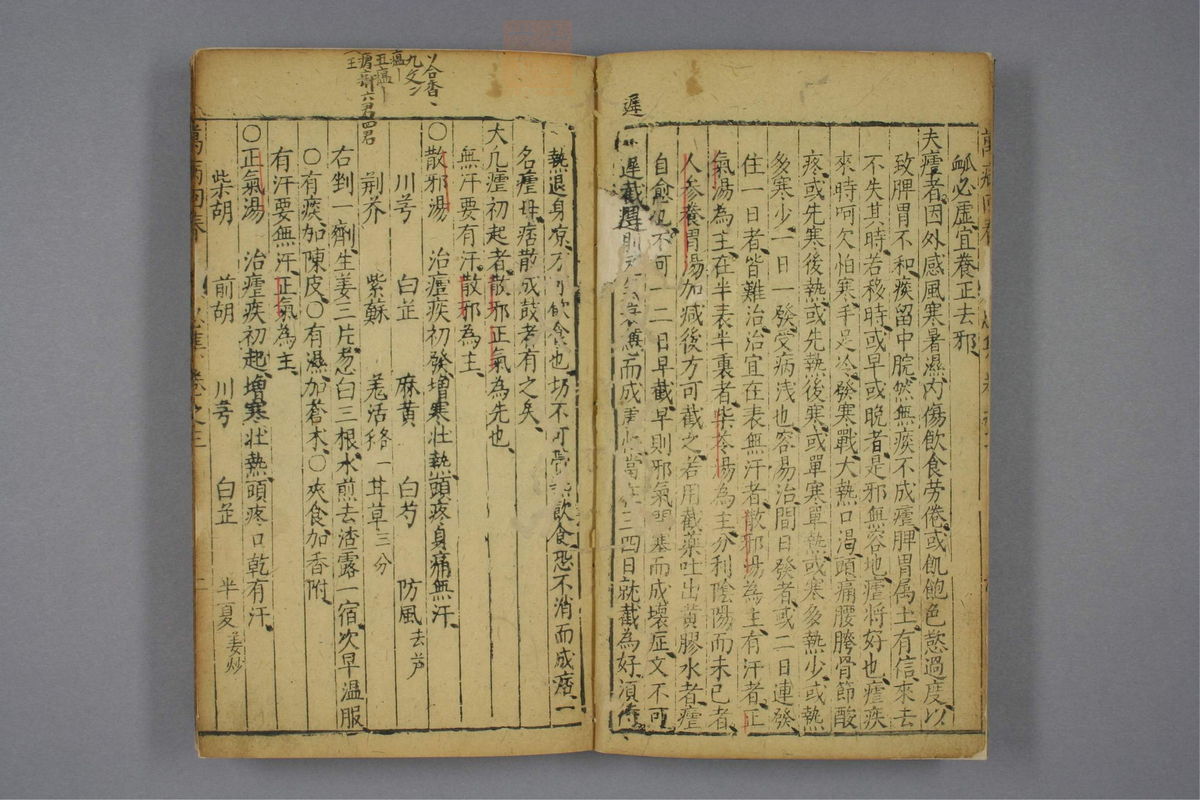 衇必虛宜養正去邪
夫瘧者因外感風寒暑濕內傷飲食勞倦或飢飽色慾過度以
致脾胃不和痰留中脘然無痰不成瘧脾胃属土有信來去
不失其時若移時或早或晚者是邪無容地瘧將好也瘧疾
來時呵欠怕寒手足冷發寒戰大熱口渴頭痛腰胯骨節酸
疼或先寒後熱或先熱後寒或單寒單熱或寒多熱少或熱
多寒少一日一發受病浅也容易治間日發者或二日連發
住一日者皆難治治宜在表無汗者散邪湯為主有汗者正
氣湯為主在半表半裏者柴苓湯為主分利陰陽而未已者
人参養胃湯加減後方可截之若用截藥吐出黃膠水者瘧
自愈也不可一二日早截早則邪氣閉塞而成壞症文不可
遲
遲截遲則元氣衰憊而成虛怯當在三四日就截為好須待
熱退身凉方可飲食也切不可帶熱飲食恐不消而成痞一
名瘧母痞散成鼓者有之矣
大凢瘧初起者散邪正氣為先也
無汗要有汗散邪為主
〇散邪湯 治瘧疾初發增寒壮熱頭疼身痛無汗
川芎 白芷 麻黄 白芍 防風去芦
荆芥 紫蘇 羗活各一 耳草三分
右剉一劑生姜三片葱白三根水煎去渣露一宿次早温服
〇有痰加陳皮〇有濕加蒼术〇夾食加香附
有汗要無汗正氣為主
〇正氣湯 治瘧疾初起增寒壮熱頭疼口乾有汗
柴胡 前胡 川芎 白芷 半夏姜炒
萬病回春 卷之三